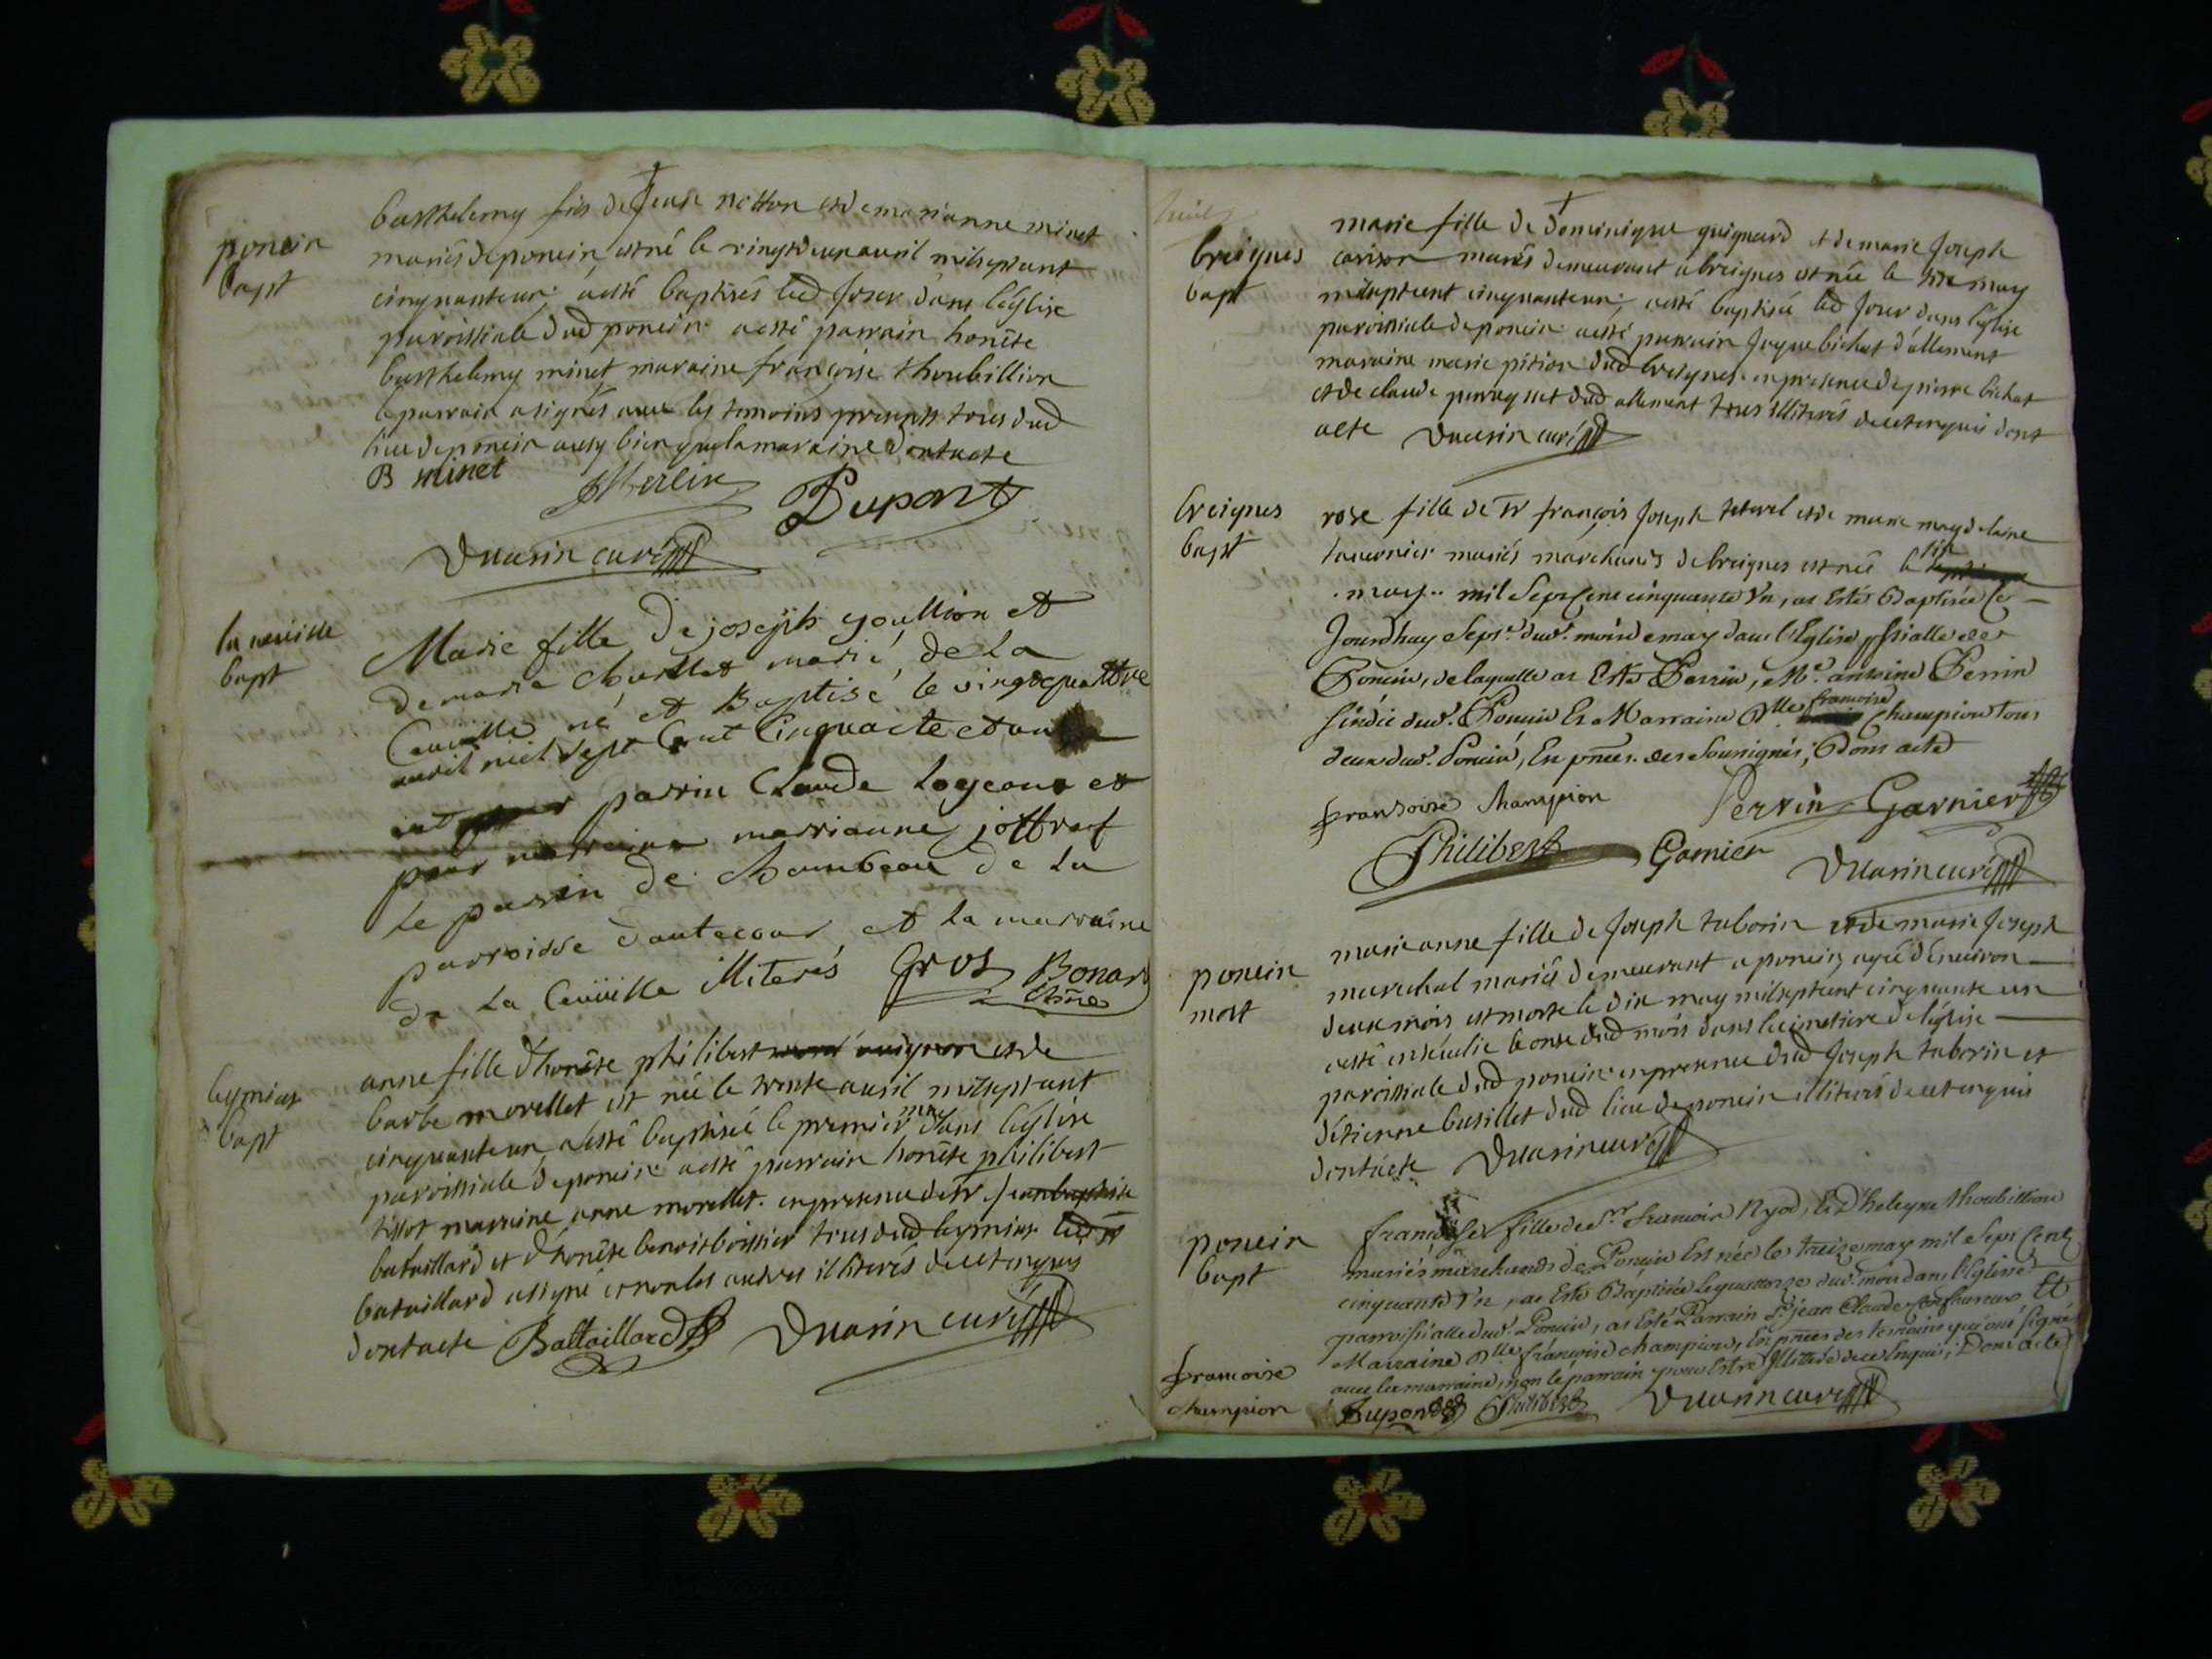 poncin
bapt
barthelemy fils de Jean notton et de marianne minet
mariés de poncin, est né le vingtdeux avril milseptcent
cinquanteun a esté baptisés led Jour dans l'eglise
paroissiale dud poncin a esté parrain honête
barthelemy minet maraine françoise thoubillion
le parrain a signés avec les temoins presents tous dud
lieu de poncin ausy bien que la maraine dont acte
B minet Merlin Dupont
curé
la cueille
bapt
Marie fille de joseph goullion et
de marie mariè de La
Cueille né et Baptisé le vingt quattre
avril mil sept Cent Cinquante et un
parrin Claude Logeont et
pour marreine marrianne
Le parrin de Chambeau de La
parroisse dautecour et la marraine
de La Cueille illiterés Gros Bonard
leymiat
bapt
anne fille d'honête philibert et de
barbe morellet est née le trente avril milseptcent
cinquanteun, a esté baptisée le premier may dans l'église
paroissiale de poncin a esté parrain honête philibert
tissot marraine anne morellet. en presence de sr Jean baptiste
bataillard et d'honête benoit boissier tous dud leymiat led sr
bataillard a signé et non les autres illiterés de ce enquis
dont acte Battaillard curé
breignes
bapt
marie fille de dominique guignard et de marie Joseph
mariés demeurant a breignes est née le six may
milseptcent cinquanteun, a esté baptisée led Jour dans l'église
paroissiale de poncin a esté parrain Jaque bichat d'allement
maraine marie pition dud breignes. en presence de pierre bichat
et de claude dud allement tous illiterés de ce enquis dont
acte curé
breignes
bapt
rose fille de sr françois Joseph et de marie magdelaine
tavernier mariés marchands de breignes est née le six
may mil Sept Cent cinquante Un, at Esté Baptisée Ce
Jourdhuy Sept.e dud. mois de may dans l'Eglise pssialle de
Poncin, de laquelle at Esté Parrin, Mr. antoine Perrin
sindic dud. Poncin Et Marraine Dlle francoise Champion tous
deux dud. Poncin, En pnce. des Sousignés, Dont acte
fransoise Champion Perrin Garnier
Philibert Garnier curé
poncin
mort
marie anne fille de Joseph taborin et de marie Joseph
marechal mariés demeurant a poncin, agée d'environ
deux mois est morte le dix may milseptcent cinquante un
a esté enseuelie le onze dud mois dans le cimetiere de l'église
paroissiale dud poncin en presence dud Joseph taborin et
d'étienne basillet dud lieu de poncin illiterés de ce enquis
dont acte curé
poncin
bapt
françoise fille de Sr francois Ryod, Et Dlle heleyne thoubillion
mariés marchands de Poncin Est née le treize may mil Sept Cent
cinquante Un, at Esté Baptisée le quattorze dud. mois dans l'Eglise
parroissialle dud. Poncin, at Esté Parrain Sr jean Claude Et
Marraine Dlle françoise champion, En pnces des temoins qui ont signé
avec la marraine, non le parrain pour Estre Illitéré de ce Enquis, Dont acte
francoise
champion
Dupont Philibert curé